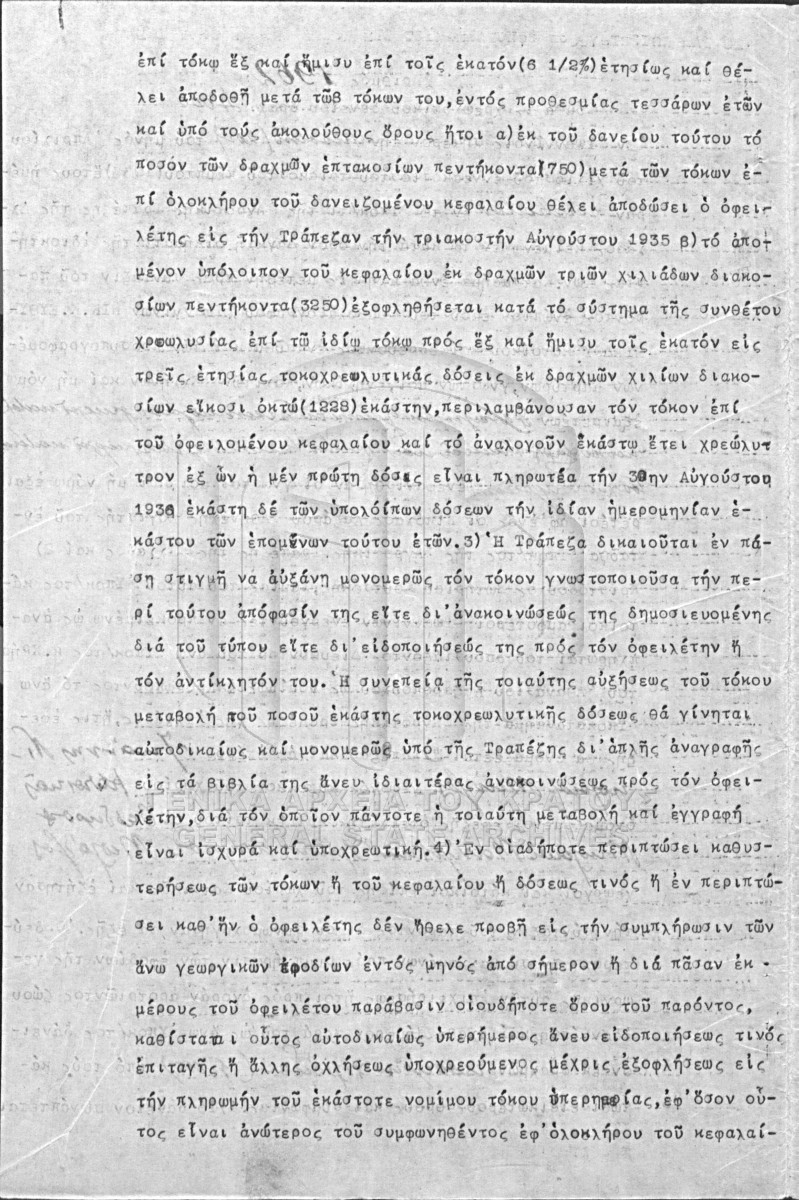 ἐπί τόκῳ ἕξ καί ἥμισυ ἐπί τοῖς ἑκατόν(6 1/2%)ἐτησίως καί θέ-
λει ἀποδοθῆ μετά τῶβ τόκων του,ἐντός προθεσμίας τεσσάρων ἐτῶν
καί ὑπό τούς ἀκολούθους ὅρους ἤτοι α)ἐκ τοῦ δανείου τούτου τό
ποσόν τῶν δραχμῶν ἑπτακοσίων πεντήκοντα(750)μετά τῶν τόκων ἐ-
πί ὁλοκλήρου τοῦ δανειζομένου κεφαλαίου θέλει ἀποδώσει ὁ ὀφει-
λέτης εἰς τήν Τράπεζαν τήν τριακοστήν Αὐγούστου 1935 β)τό ἀπο-
μένον ὑπόλοιπον τοῦ κεφαλαίου ἐκ δραχμῶν τριῶν χιλιάδων διακο-
σίων πεντήκοντα(3250)ἐξοφληθήσεται κατά τό σύστημα τῆς συνθέτου
χρεωλυσίας ἐπί τῶ ἰδίῳ τόκῳ πρός ἕξ καί ἥμισυ τοῖς ἑκατόν εἰς
τρεῖς ἐτησίας τοκοχρεωλυτικάς δόσεις ἐκ δραχμῶν χιλίων διακο-
σίων εἴκοσι ὀκτώ(1228)ἑκάστην,περιλαμβάνουσαν τόν τόκον ἐπί
τοῦ ὀφειλομένου κεφαλαίου καί τό ἀναλογοῦν ἑκάστῳ ἔτει χρεώλυτ
τρον ἐξ ὧν ἡ μέν πρώτη δόσις εἶναι πληρωτέα τήν 30ην Αὐγούστου
1936 ἑκάστη δέ τῶν ὑπολοίπων δόσεων τήν ἰδίαν ἡμερομηνίαν ἑ-
κάστου τῶν ἑπομένων τούτου ἐτῶν.3)Ἡ Τράπεζα δικαιοῦται ἐν πά-
ση στιγμῆ να αὐξάνη μονομερῶς τόν τόκον γνωστοποιοῦσα τήν πε-
ρί τούτου ἀπόφασίν της εἴτε δι'ἀνακοινώσεώς της δημοσιευομένης
διά τοῦ τύπου εἴτε δι'εἰδοποιήσεώς της πρός τόν ὀφειλέτην ἤ
τόν ἀντίκλητόν του.Ἡ συνεπεία τῆς τοιαύτης αὐξήσεως τοῦ τόκου
μεταβολή τοῦ ποσοῦ ἑκάστης τοκοχρεωλυτικῆς δόσεως θά γίνηται
αὐτοδικαίως καί μονομερῶς ὑπό τῆς Τραπέζης δι'ἁπλῆς ἀναγραφῆς
εἰς τά βιβλία της ἄνευ ἰδιαιτέρας ἀνακοινώσεως πρός τόν ὀφει-
λέτην,διά τόν ὁποῖον πάντοτε ἡ τοιαύτη μεταβολή καί ἐγγραφή
εἶναι ἰσχυρά καί ὑποχρεωτική.4)Ἐν οἱαδήποτε περιπτώσει καθυσ-
τερήσεως τῶν τόκων ἤ τοῦ κεφαλαίου ἤ δόσεως τινός ἤ ἐν περιπτώ-
σει καθ'ἥν ὁ ὀφειλέτης δέν ἤθελε προβῆ εἰς τήν συμπλήρωσιν τῶν
ἄνω γεωργικῶν ἐφοδίων ἐντός μηνός ἀπό σήμερον ἤ διά πᾶσαν ἐκ -
μέρους τοῦ ὀφειλέτου παράβασιν οἱουδήποτε ὅρου τοῦ παρόντος,
καθίσταται οὗτος αὐτοδικαίως ὑπερήμερος ἄνευ εἰδοποιήσεως τινός
ἐπιταγῆς ἤ ἄλλης ὀχλήσεως ὑποχρεούμενος μέχρις ἐξοφλήσεως εἰς
τήν πληρωμήν τοῦ ἑκάστοτε νομίμου τόκου ὑπερημερίας,ἐφ'ὅσον οὗ-
τος εἶναι ἀνώτερος τοῦ συμφωνηθέντος ἐφ'ὁλοκλήρου τοῦ κεφαλαί-
ΓΕΝΙΚΑ ΑΡΧΕΙΑ ΤΟΥ ΚΡΑΤΟΥΣ
GENERAL STATE ARCHIVES